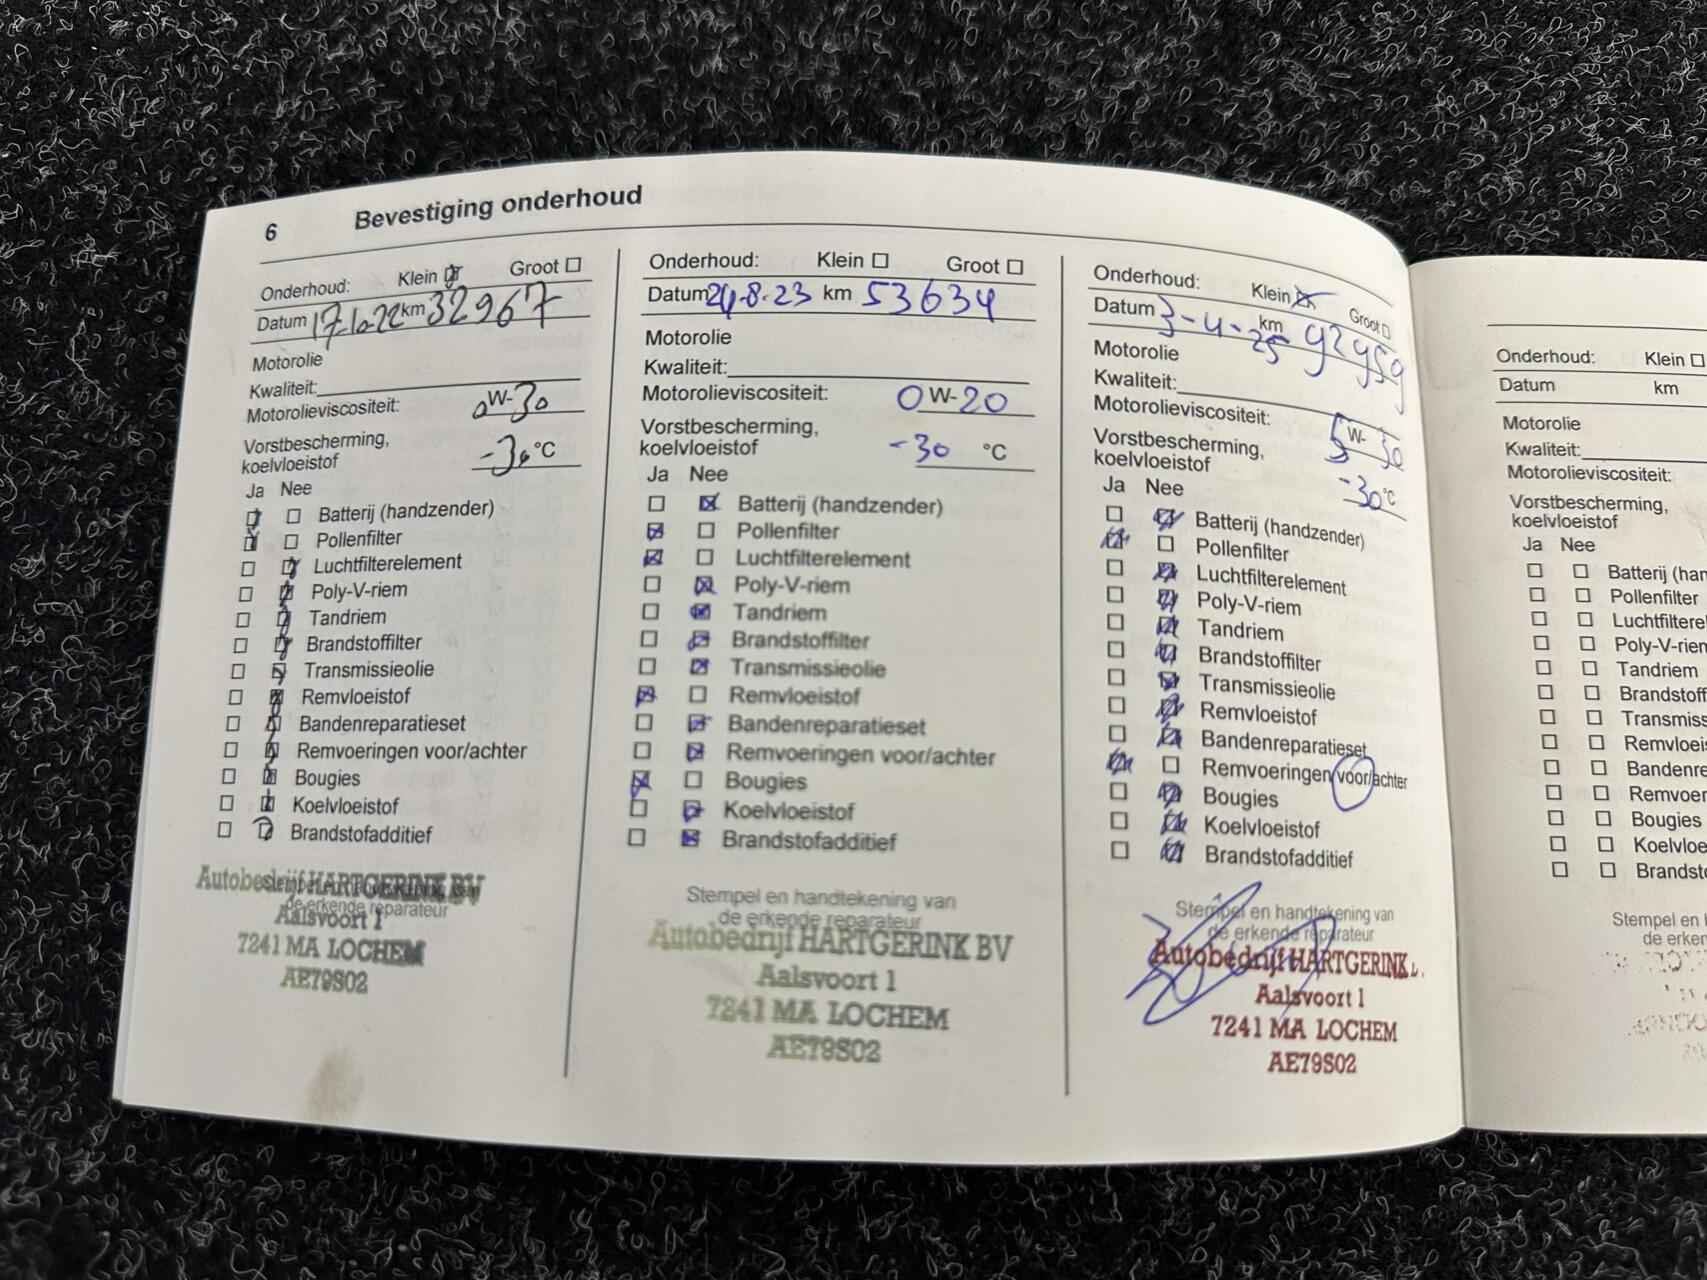 6 Bevestiging onderhoud
Onderhoud: Klein Groot
Datum 17-10-22 km 32967
Motorolie
Kwaliteit:
Motorolieviscositeit: 0W-30
Vorstbescherming,
koelvloeistof -30 °C
Ja Nee
Batterij (handzender)
Pollenfilter
Luchtfilterelement
Poly-V-riem
Tandriem
Brandstoffilter
Transmissieolie
Remvloeistof
Bandenreparatieset
Remvoeringen voor/achter
Bougies
Koelvloeistof
Brandstofadditief
Autobedrijf HARTGERINK BV
de erkende reparateur
Aalsvoort 1
7241 MA LOCHEM
AE79S02
Onderhoud: Klein Groot
Datum 24-8-23 km 53634
Motorolie
Kwaliteit:
Motorolieviscositeit: 0W-20
Vorstbescherming,
koelvloeistof -30 °C
Ja Nee
Batterij (handzender)
Pollenfilter
Luchtfilterelement
Poly-V-riem
Tandriem
Brandstoffilter
Transmissieolie
Remvloeistof
Bandenreparatieset
Remvoeringen voor/achter
Bougies
Koelvloeistof
Brandstofadditief
Stempel en handtekening van
de erkende reparateur
Autobedrijf HARTGERINK BV
Aalsvoort 1
7241 MA LOCHEM
AE79S02
Onderhoud: Klein Groot
Datum 3-4-25 km 92959
Motorolie
Kwaliteit:
Motorolieviscositeit: 5W-30
Vorstbescherming,
koelvloeistof -30 °C
Ja Nee
Batterij (handzender)
Pollenfilter
Luchtfilterelement
Poly-V-riem
Tandriem
Brandstoffilter
Transmissieolie
Remvloeistof
Bandenreparatieset
Remvoeringen voor/achter
Bougies
Koelvloeistof
Brandstofadditief
Stempel en handtekening van
de erkende reparateur
Autobedrijf HARTGERINK
Aalsvoort 1
7241 MA LOCHEM
AE79S02
Onderhoud: Klein
Datum km
Motorolie
Kwaliteit:
Motorolieviscositeit:
Vorstbescherming,
koelvloeistof
Ja Nee
Batterij (han
Pollenfilter
Luchtfiltere
Poly-V-rien
Tandriem
Brandstoff
Transmiss
Remvloeis
Bandenre
Remvoer
Bougies
Koelvloe
Brandsto
Stempel en
de erken